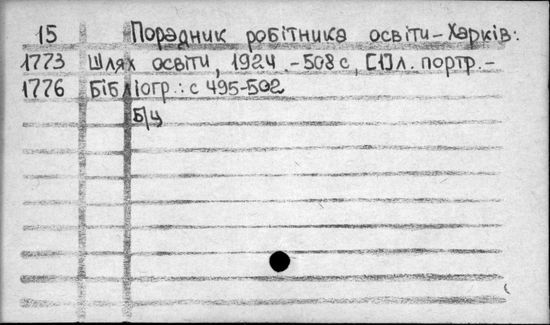 15 Порадник робітника освіти - Харків:
1773 Шлях освіти, 1924. - 508 с, [1] л. портр. -
1776 Бібліогр.: с 495-502
Б/ц